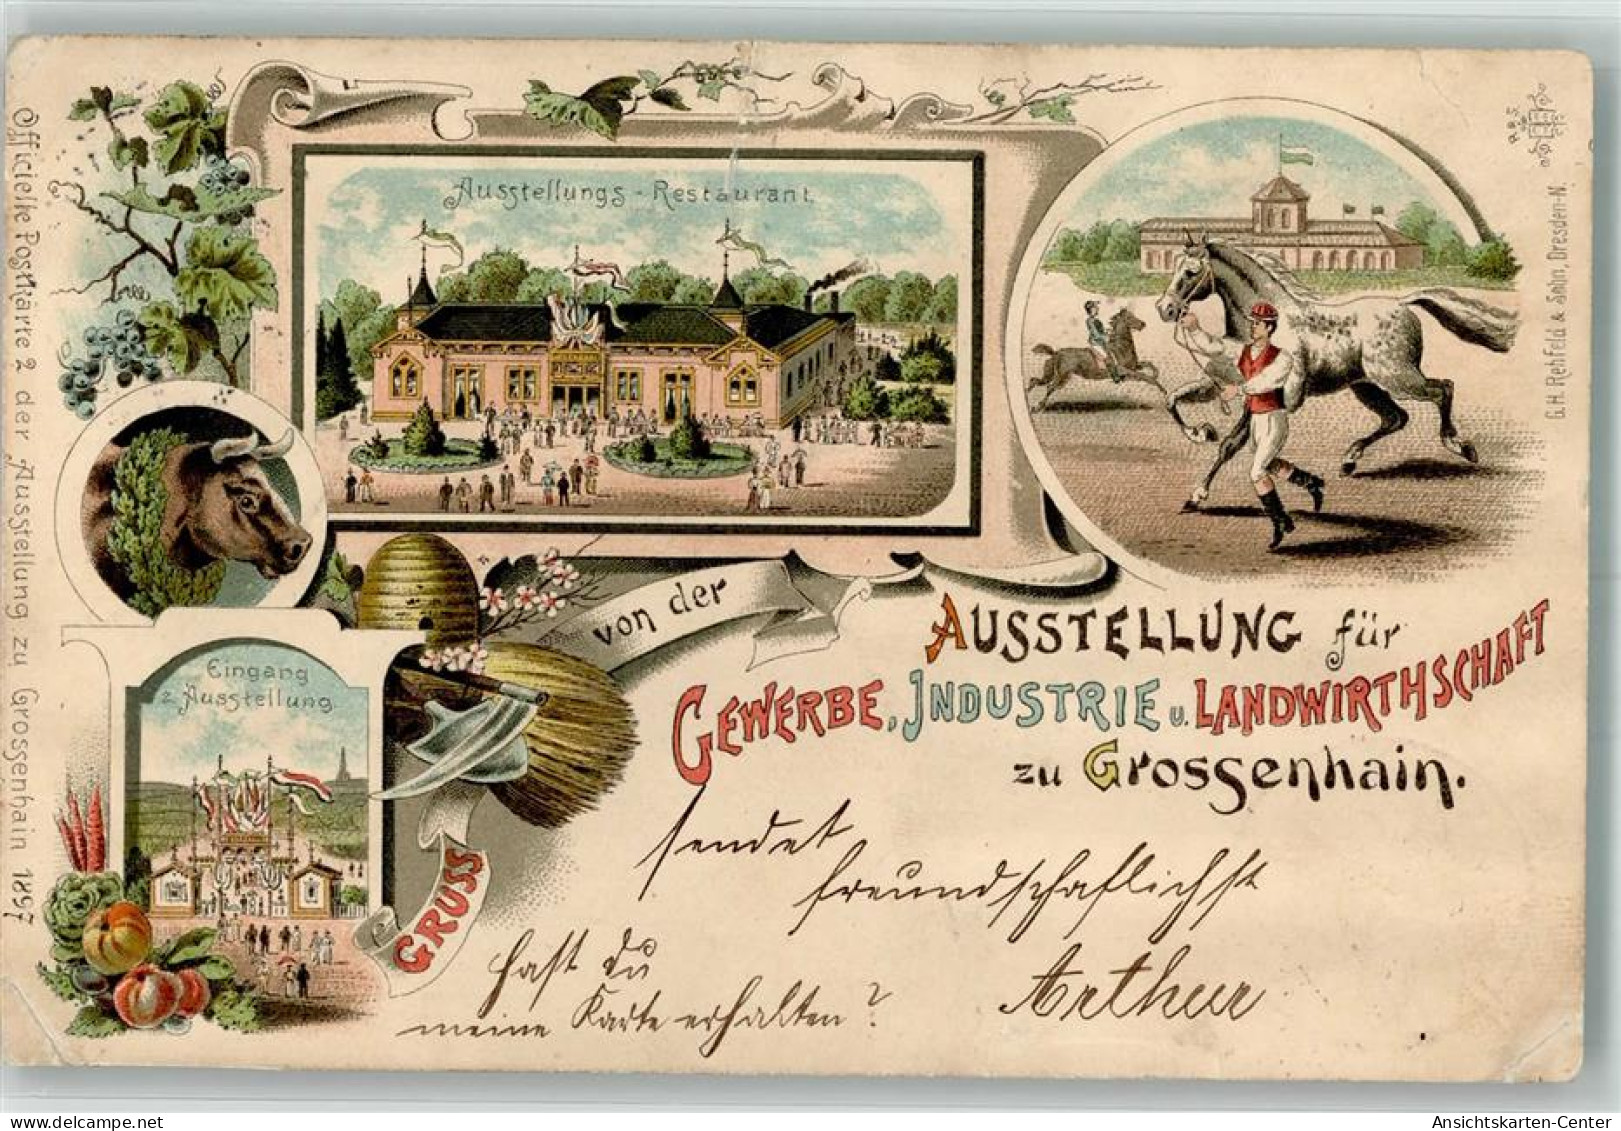 Officielle Postkarte 2 der Ausstellung zu Grossenhain 1897
Ausstellungs-Restaurant
R&S
G.H. Rehfeld & Sohn, Dresden-N.
Eingang
z. Ausstellung.
GRUSS
von der
AUSSTELLUNG für
GEWERBE, INDUSTRIE u. LANDWIRTHSCHAFT
zu Grossenhain.
sendet
freundschaftlichst
Arthur
Hast Du
meine Karte erhalten?
Ansichtskarten-Center